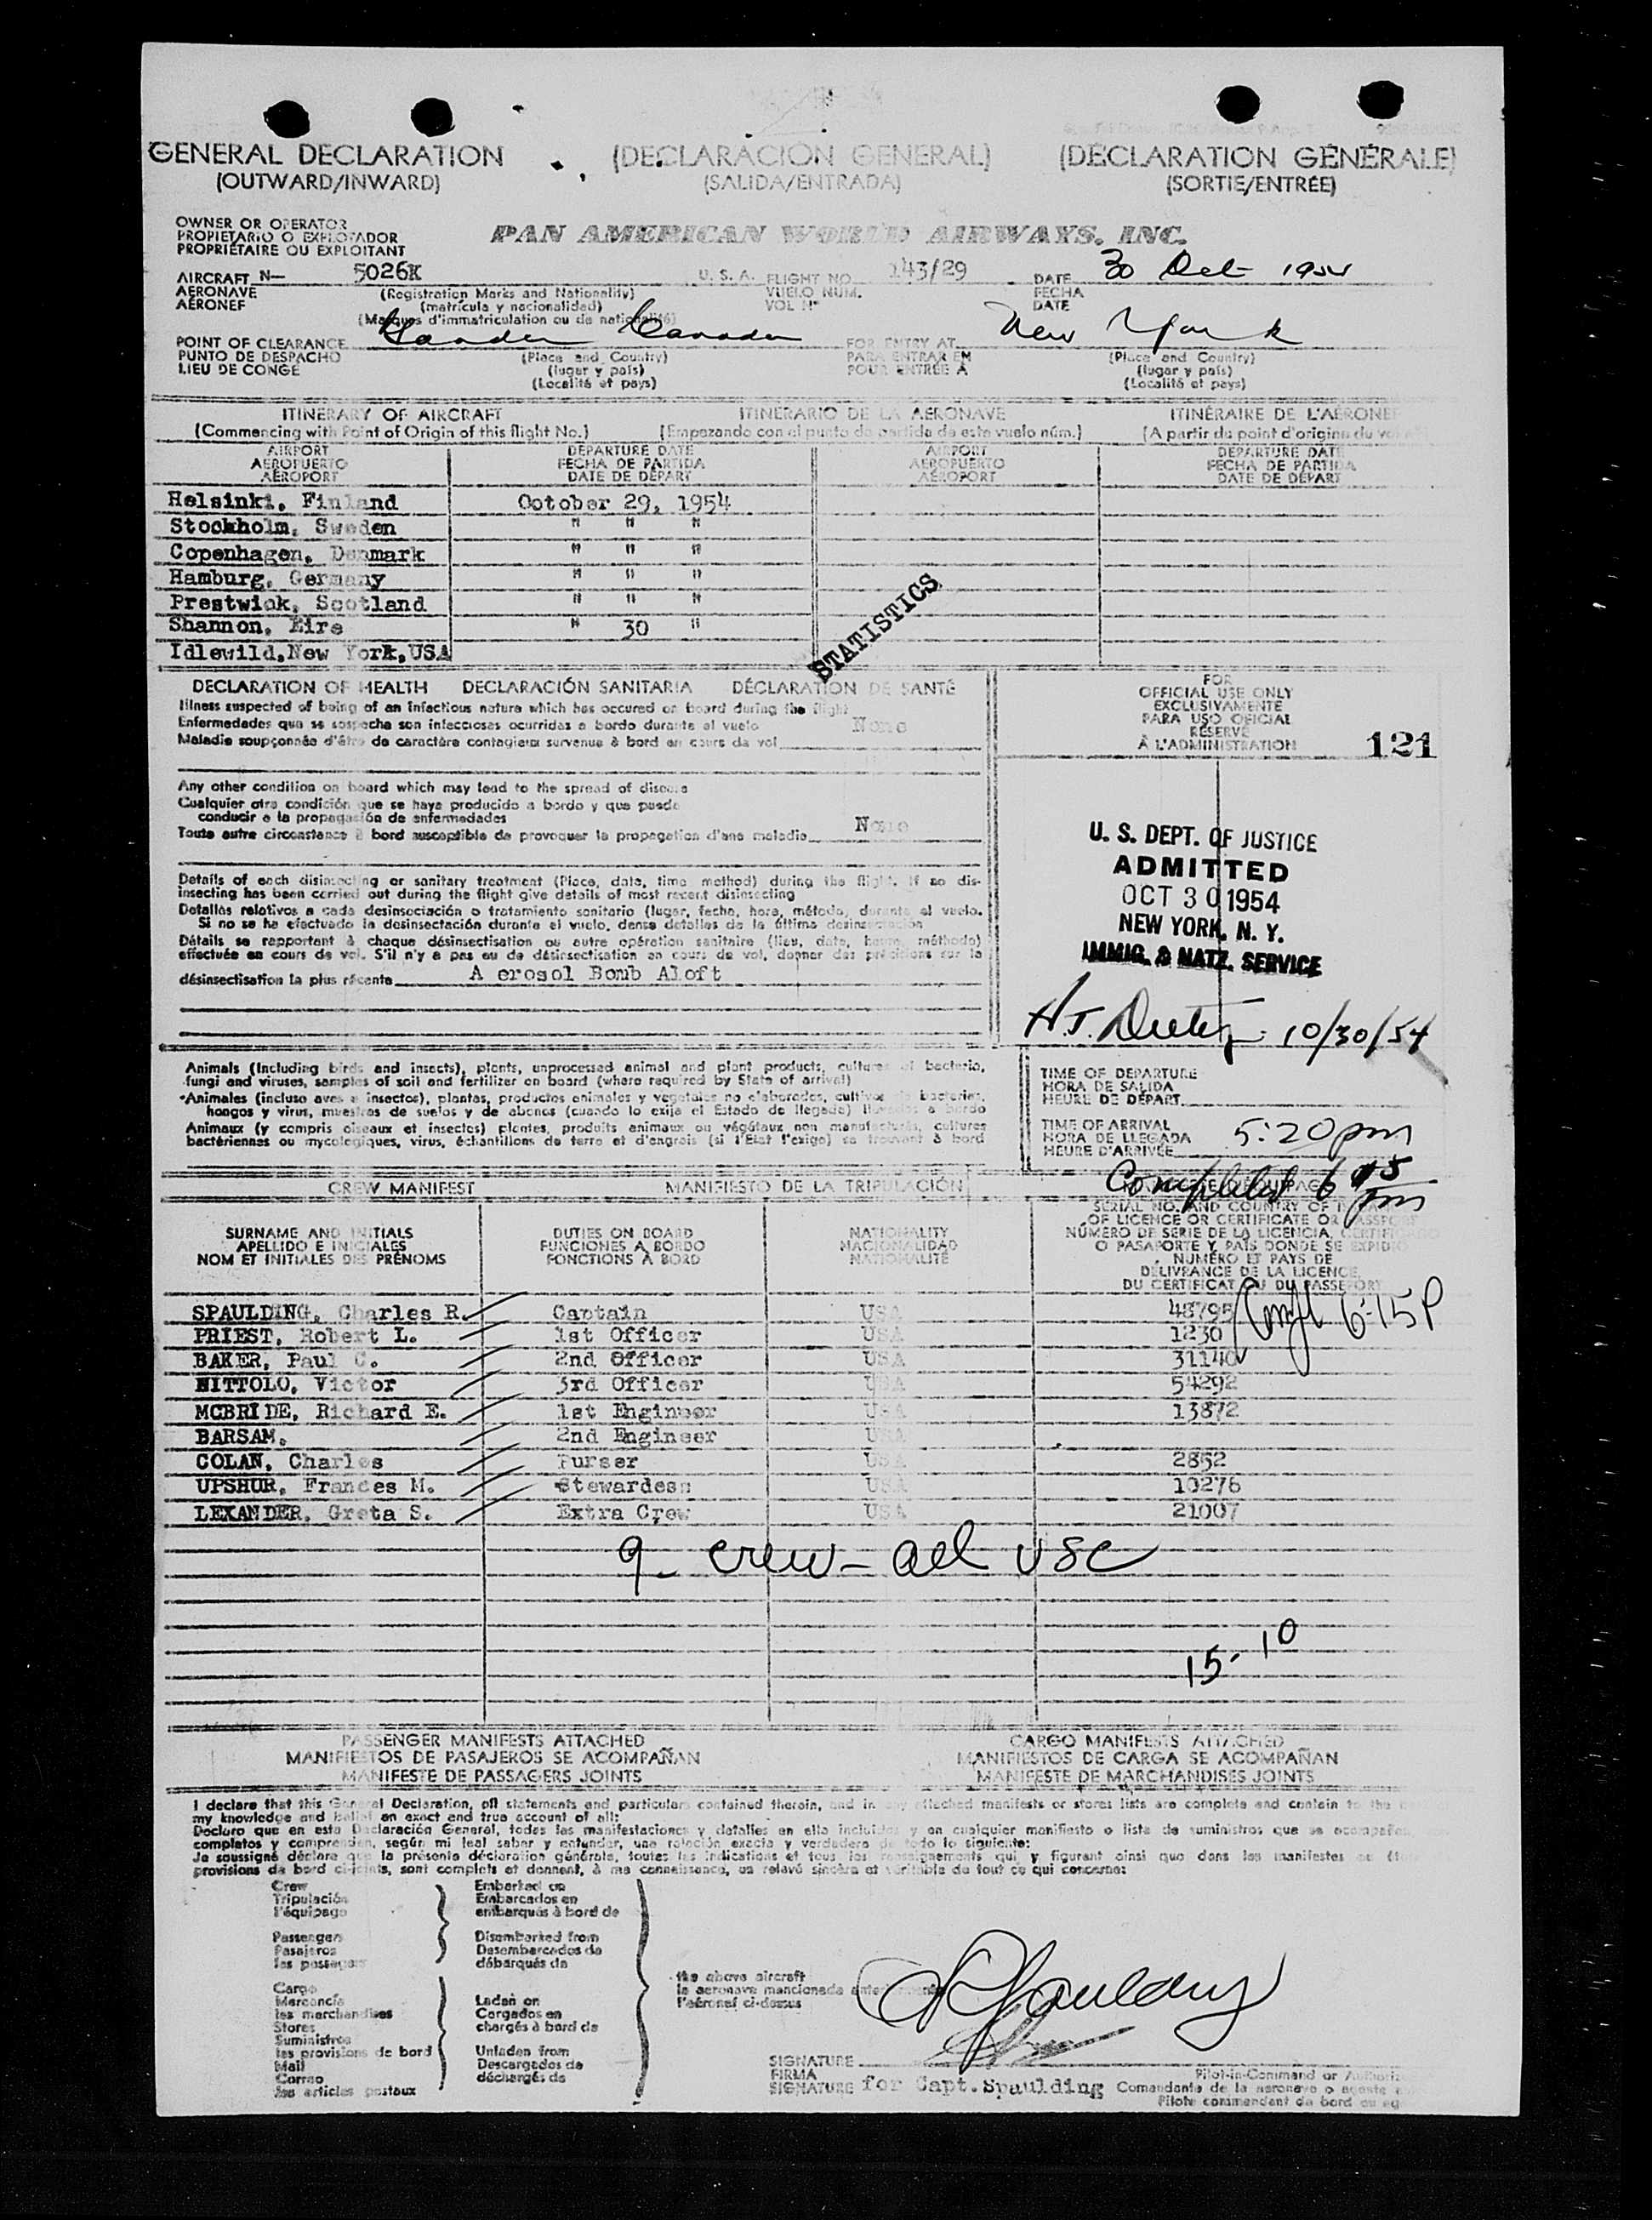 GENERAL DECLARATION (DECLARACIÓN GENERAL) (DÉCLARATION GÉNÉRALE)
(OUTWARD/INWARD) (SALIDA/ENTRADA) (SORTIE/ENTRÉE)
OWNER OR OPERATOR
PROPIETARIO O EXPLOTADOR
PROPRIÉTAIRE OU EXPLOITANT
PAN AMERICAN WORLD AIRWAYS, INC.
AIRCRAFT N— 5026K U. S. A. FLIGHT NO. 143/29 DATE 30 Oct 1954
AERONAVE (Registration Marks and Nationality) VUELO NUM. FECHA
AÉRONEF (matrícula y nacionalidad) VOL Nº DATE
(Marques d'immatriculation ou de nationalité)
POINT OF CLEARANCE Gander Canada FOR ENTRY AT New York
PUNTO DE DESPACHO (Place and Country) PARA ENTRAR EN (Place and Country)
LIEU DE CONGÉ (lugar y país) POUR ENTRÉE À (lugar y país)
(Localité et pays) (Localité et pays)
ITINERARY OF AIRCRAFT ITINERARIO DE LA AERONAVE ITINÉRAIRE DE L'AÉRONEF
(Commencing with Point of Origin of this flight No.) (Empezando con el punto de partida de este vuelo núm.) (A partir du point d'origine du
AIRPORT DEPARTURE DATE AIRPORT DEPARTURE DATE
AEROPUERTO FECHA DE PARTIDA AEROPUERTO FECHA DE PARTIDA
AÉROPORT DATE DE DÉPART AÉROPORT DATE DE DÉPART
Helsinki, Finland October 29, 1954
Stockholm, Sweden " " "
Copenhagen, Denmark " " "
Hamburg, Germany " " "
Prestwick, Scotland " " "
Shannon, Eire " 30 "
Idlewild,New York,USA
STATISTICS
DECLARATION OF HEALTH DECLARACIÓN SANITARIA DÉCLARATION DE SANTÉ
Illness suspected of being of an infectious nature which has occured on board during the flight
Enfermedades que se sospecha son infecciosas ocurridas a bordo durante el vuelo None
Maladie soupçonnée d'être de caractère contagieux survenue à bord en cours de vol
Any other condition on board which may lead to the spread of disease
Cualquier otra condición que se haya producido a bordo y que puede
conducir a la propagación de enfermedades
Toute autre circonstance à bord susceptible de provoquer la propagation d'une maladie None
Details of each disinsecting or sanitary treatment (Place, date, time method) during the flight. If no dis-
insecting has been carried out during the flight give details of most recent disinsecting
Detalles relativos a cada desinsectación o tratamiento sanitario (lugar, fecha, hora, método, durante el vuelo.
Si no se ha efectuado la desinsectación durante el vuelo, dense detalles de la última desinsectación
Détails se rapportant à chaque désinsectisation ou autre opération sanitaire (lieu, date, heure, méthode)
effectuée en cours de vol. S'il n'y a pas eu de désinsectisation en cours de vol, donner des précisions sur la
désinsectisation la plus récente A erosol Bomb Aloft
FOR
OFFICIAL USE ONLY
EXCLUSIVAMENTE
PARA USO OFICIAL
RÉSERVÉ
À L'ADMINISTRATION
121
U. S. DEPT. OF JUSTICE
ADMITTED
OCT 30 1954
NEW YORK, N. Y.
IMMIG. & NATZ. SERVICE
10/30/54
Animals (Including birds and insects), plants, unprocessed animal and plant products, cultures of bacteria,
fungi and viruses, samples of soil and fertilizer on board (where required by State of arrival)
Animales (incluso aves e insectos), plantas, productos animales y vegetales no elaborados, cultivos de bacterias,
hongos y virus, muestras de suelos y de abonos (cuando lo exija el Estado de llegada) llevados a bordo
Animaux (y compris oiseaux et insectes) plantes, produits animaux ou végétaux non manufacturés, cultures
bactériennes ou mycologiques, virus, échantillons de terre et d'engrais (si l'Etat l'exige) se trouvant à bord
TIME OF DEPARTURE
HORA DE SALIDA
HEURE DE DÉPART
TIME OF ARRIVAL
HORA DE LLEGADA 5:20 pm
HEURE D'ARRIVÉE
Completed 6 15 pm
CREW MANIFEST MANIFIESTO DE LA TRIPULACIÓN
SURNAME AND INITIALS DUTIES ON BOARD NATIONALITY
APELLIDO E INICIALES FUNCIONES A BORDO NACIONALIDAD
NOM ET INITIALES DES PRÉNOMS FONCTIONS À BORD NATIONALITÉ
SERIAL NO. AND COUNTRY OF
OF LICENCE OR CERTIFICATE OR PASSPORT
NÚMERO DE SERIE DE LA LICENCIA,
O PASAPORTE Y PAÍS DONDE SE EXPIDIÓ
NUMÉRO ET PAYS DE
DÉLIVRANCE DE LA LICENCE,
DU CERTIFICAT OU DU PASSEPORT
SPAULDING, Charles R. Captain USA 48795
PRIEST, Robert L. 1st Officer USA 1230
BAKER, Paul C. 2nd Officer USA 31140
NITTOLO, Victor 3rd Officer USA 54292
MCBRIDE, Richard E. 1st Engineer USA 13872
BARSAM. 2nd Engineer USA
COLAN, Charles Purser USA 2852
UPSHUR, Frances M. Stewardess USA 10276
LEXANDER, Greta S. Extra Crew USA 21007
Compl 6:15P
9 - crew - all USC
15-10
PASSENGER MANIFESTS ATTACHED CARGO MANIFESTS ATTACHED
MANIFIESTOS DE PASAJEROS SE ACOMPAÑAN MANIFIESTOS DE CARGA SE ACOMPAÑAN
MANIFESTE DE PASSAGERS JOINTS MANIFESTE DE MARCHANDISES JOINTS
I declare that this General Declaration, all statements and particulars contained therein, and in attached manifests or stores lists are complete and contain to the
my knowledge and belief an exact and true account of all:
Declaro que en esta Declaración General, todas las manifestaciones y detalles en ella incluidos y en cualquier manifiesto o lista de suministros que se acompañe,
completos y comprenden, según mi leal saber y entender, una relación exacta y verdadera de todo lo siguiente:
Je soussigné déclare que la présente déclaration générale, toutes les indications et tous les renseignements qui y figurent ainsi que dans les manifestes
provisions de bord ci-joints, sont complets et donnent, à ma connaissance, un relevé sincère et véritable de tout ce qui concerne:
Crew Embarked on
Tripulación Embarcados en
l'équipage embarqués à bord de
Passengers Disembarked from
Pasajeros Desembarcados de
les passagers débarqués de
Cargo
Mercancía Laden on
les marchandises Cargados en
Stores chargés à bord de
Suministros
les provisions de bord Unladen from
Mail Descargados de
Correo déchargés de
les articles postaux
the above aircraft
la aeronave mencionada anteriormente
l'aéronef ci-dessus
Spaulding
SIGNATURE
FIRMA Pilot-in-Command or
SIGNATURE for Capt.Spaulding Comandante de la aeronave o agente
Pilote commandant de bord ou